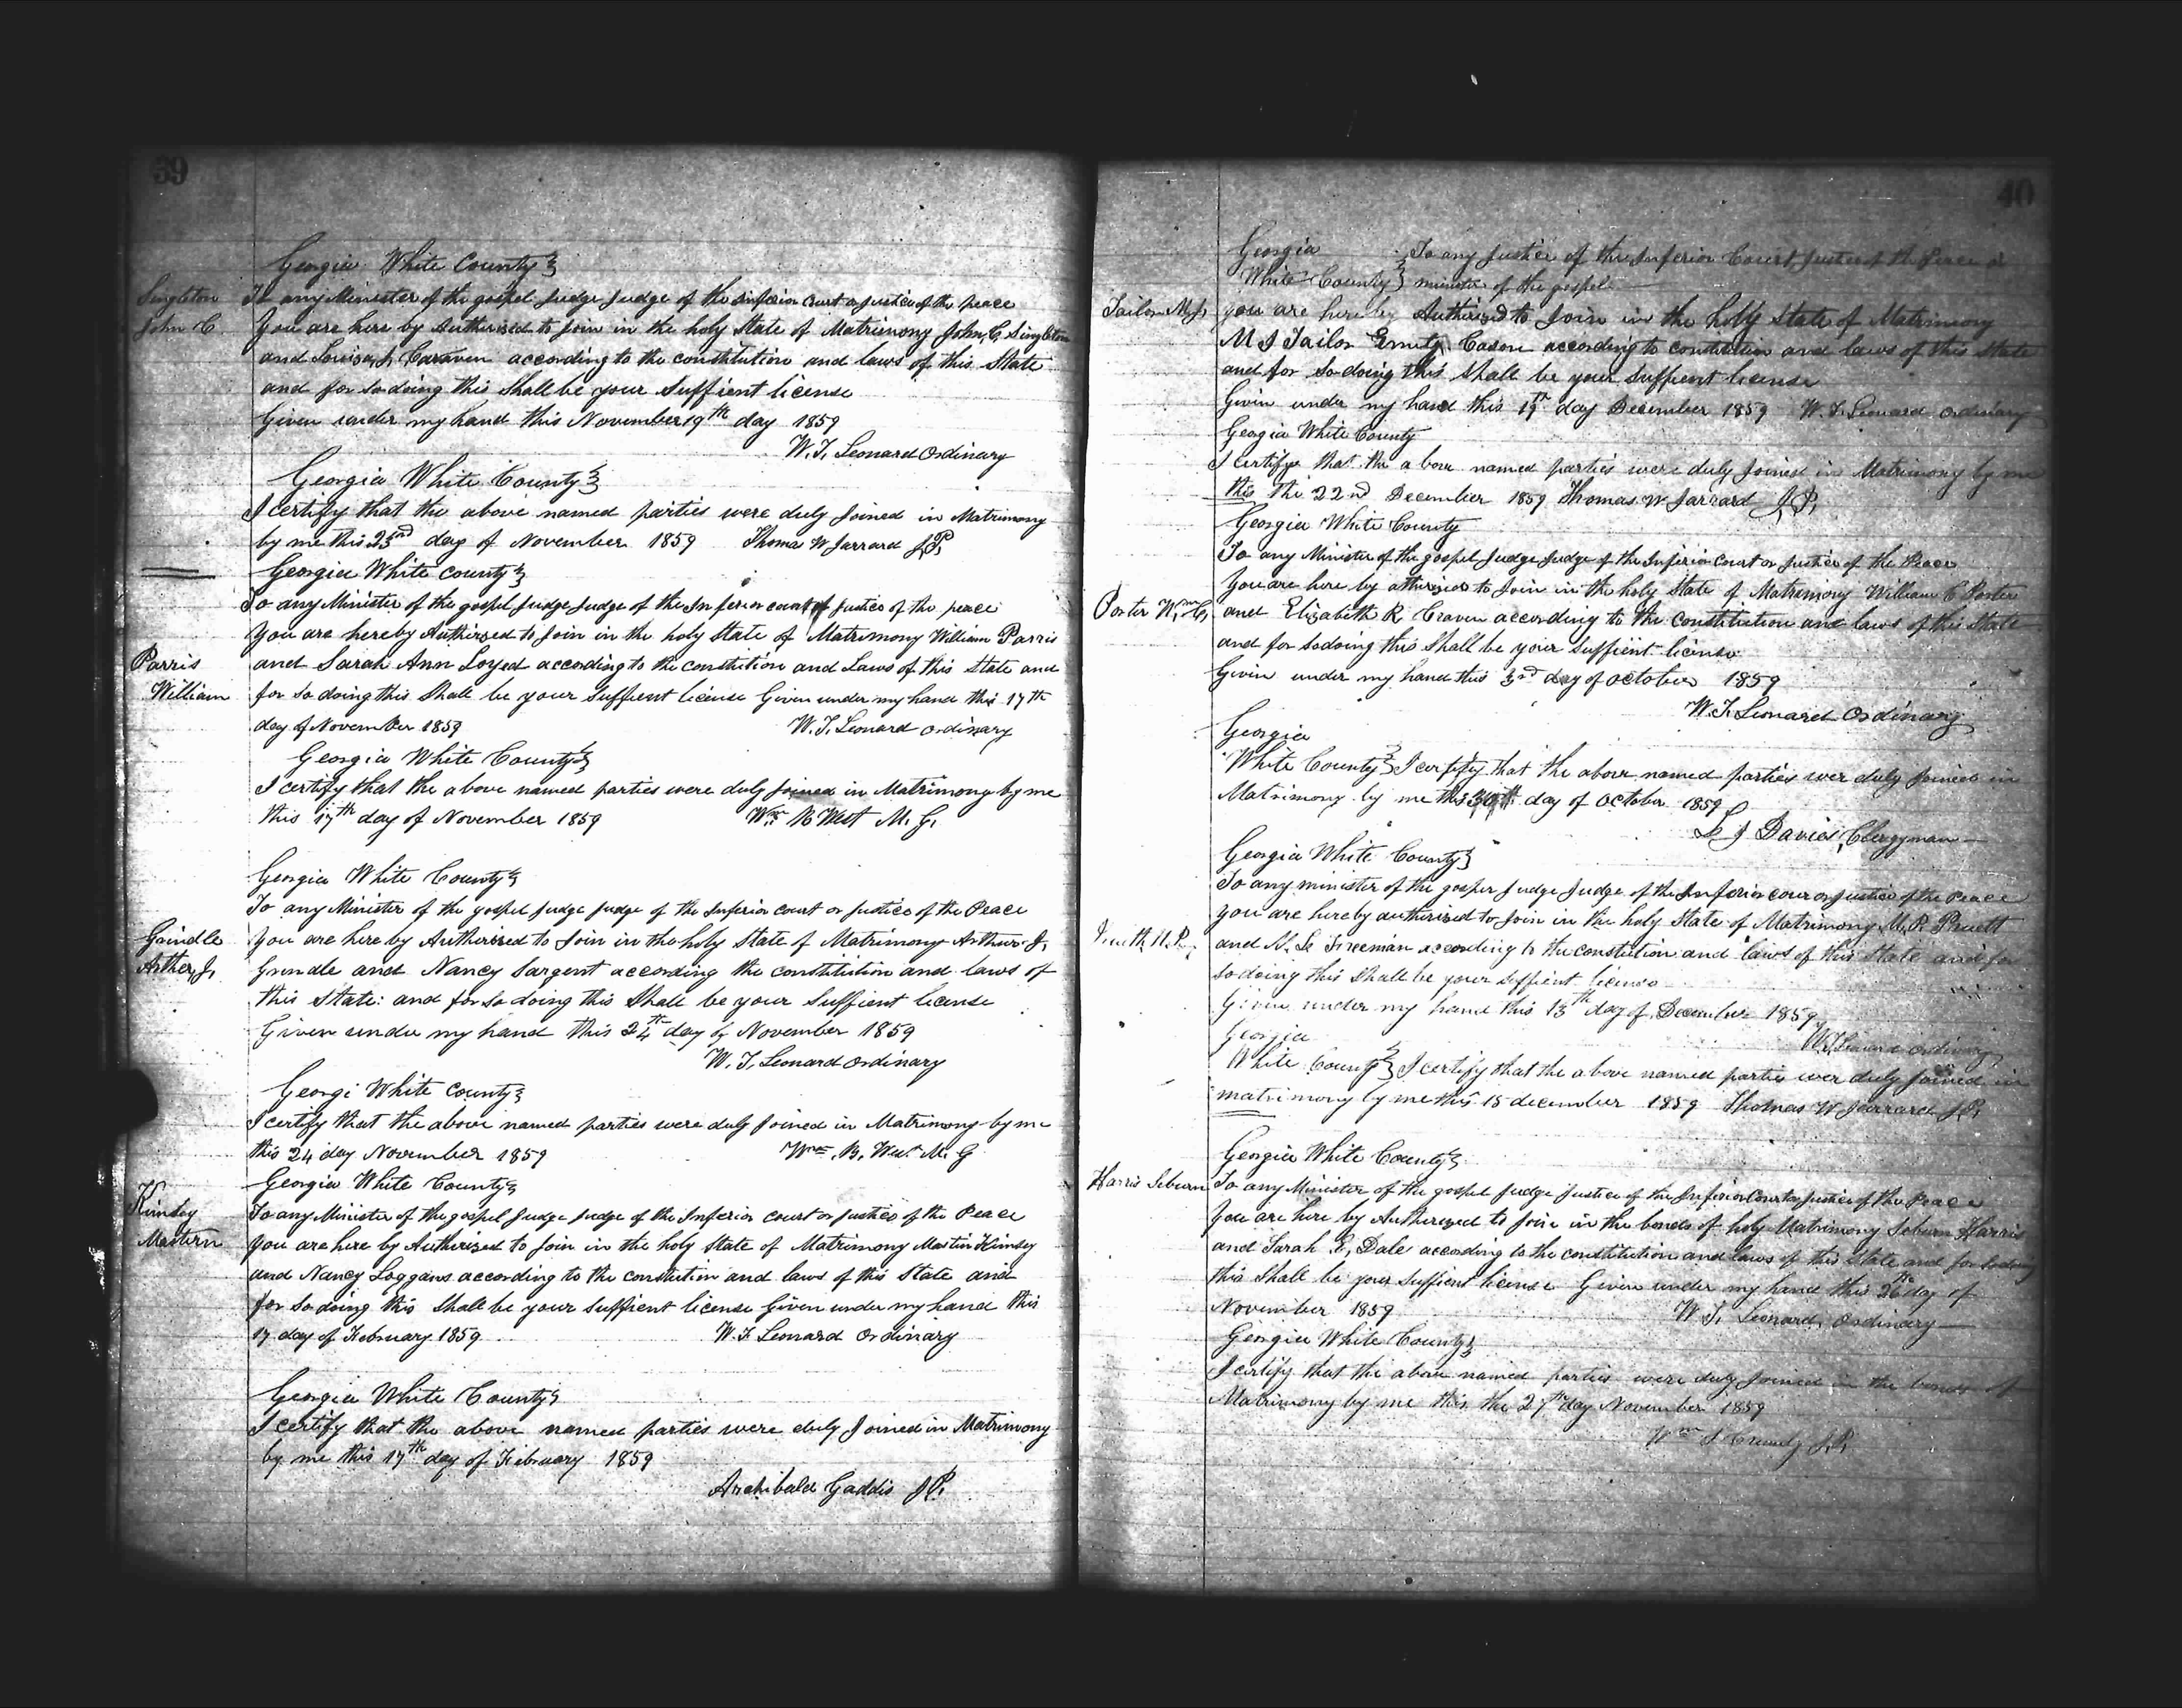 39
Georgia White County
Singleton
John C.
To any Minister of the gospel Judge Judge of the inferior Court or Justice of the peace
You are here by Authorised to Join in the holy State of Matrimony John C. Singleton
and Louisa J. Caraven according to the constitution and laws of this State
and for so doing this Shall be your Suffient license
Given under my hand this November 19th day 1859
W. F. Leonard Ordinary
Georgia White County
I certify that the above named parties were duly Joined in Matrimony
by me this 23rd day of November 1859 Thomas W Jarrard J.P.
Georgia White County
To any Minister of the gospel Judge Judge of the Inferior court Justice of the peace
You are hereby Authirsed to Join in the holy State of Matrimony William Parris
Parris
William
and Sarah Ann Loyed according to the constition and Laws of this State and
for so doing this Shall be your Suffient license Given under my hand this 17th
day of November 1859 W. F. Leonard ordinary
Georgia White County
I certify that the above named parties were duly Joined in Matrimony by me
this 17th day of November 1859 Wm B West M. G.
Georgia White County
To any Minister of the gospel Judge Judge of the Inferior court or Justice of the Peace
Grindle
Arther J.
You are here by Authorised to Join in the holy State of Matrimony Arthur J.
Grindle and Nancy Sargent according the constitution and laws of
this State: and for so doing this Shall be your Suffient license
Given under my hand this 24th day of November 1859
W. F. Leonard Ordinary
Georgi White County
I certify that the above named parties were duly Joined in Matrimony by me
this 24 day November 1859 Wm. B. West M. G
Georgia White County
Kimsey
Mastern
To any Minister of the gospel Judge Judge of the Inferior court or Justice of the Peace
You are here by Authorised to Join in the holy State of Matrimony Martin Kimsey
and Nancy Loggans according to the constitution and laws of this State and
for So doing this Shall be your Suffient license Given under my hand this
17 day of February 1859 W. F. Leonard Ordinary
Georgia White County
I certify that the above named parties were duly Joined in Matrimony
by me this 17th day of February 1859
Archibald Gaddis J.P.
40
Georgia To any Justice of the Inferior Court Justice of the Peace or
White County minister of the gospel
Tailor M J
you are hereby Authorised to Join in the holy State of Matrimony
M J Tailor Emity Cason according to constitution and laws of this State
and for So doing this Shall be your Suffient license
Given under my hand this 19th day December 1859 W. F. Leonard ordinary
Georgia White County
I certify that the above named parties were duly Joined in Matrimony by me
this the 22nd December 1859 Thomas W Jarrard J.P.
Georgia White County
To any Minister of the gospel Judge Judge of the Inferior Court or Justice of the Peace
You are here by athorised to Join in the holy State of Matrimony William C Porter
Porter Wm C.
and Elizabeth R Craven according to the constitution and laws of this State
and for so doing this Shall be your Suffient license
Given under my hand this 3rd day of october 1859
W. F. Leonard Ordinary
Georgia
White County I certify that the above named parties wer duly Joined in
Matrimony by me this day of October 1859
J Davies, Clergyman
Georgia White County
To any minister of the gosper Judge Judge of the Inferior cour or Justice of the Peace
you are hereby authorised to Join in the holy State of Matrimony M. P. Pruett
and Freeman according to the constetution and laws of this State and for
So doing this Shall be your Seffient licence
Given under my hand this 13th day of December 1859
W. F. Leonard ordinary
Georgia
White County I certify that the above named parties wer duly Joined in
matrimony by me this 15 december 1859 Thomas W Jarrard J.P.
Georgia White County
Harris Seburn
To any Minister of the gospel Judge Justice of the Inferior Court or Justice of the Peace
You are here by Authorized to Join in the bonds of holy Matrimony Seburn Harris
and Sarah E, Dale according to the constitution and laws of this State and for So doing
this Shall be your Suffient license Given under my hand this 26th day of
November 1859 W. F. Leonard, Ordinary
Georgia White County
I certify that the above named parties were duly Joined in the bonds of
Matrimony by me this the 27th day November 1859
Wm J.P.